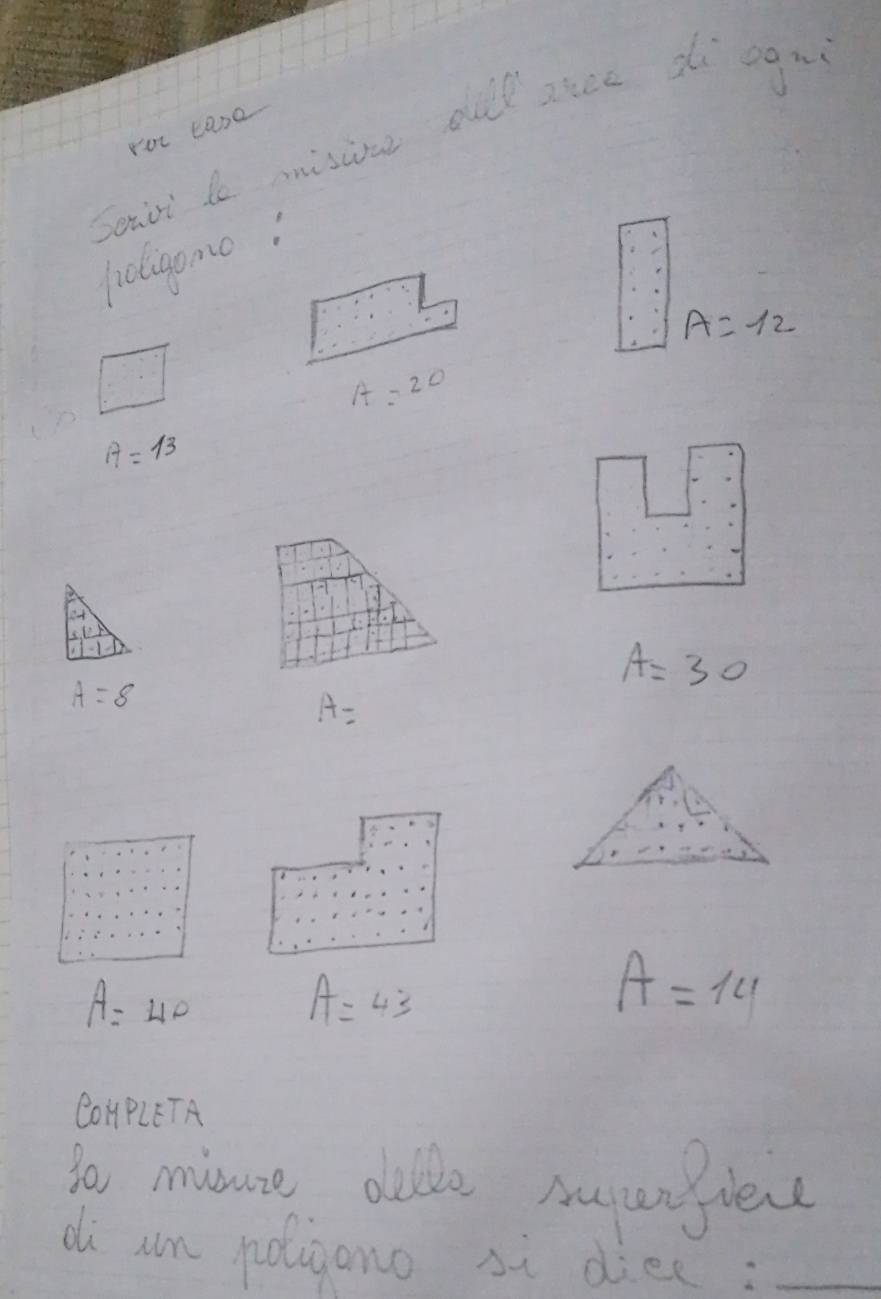 Per casa
Scrivi la misura dell'area di ogni
poligono :
A = 12
A = 20
A = 13
A = 30
A = 8
A =
A = 40
A = 43
A = 14
COMPLETA
La misura della superficie
di un poligono si dice : ____